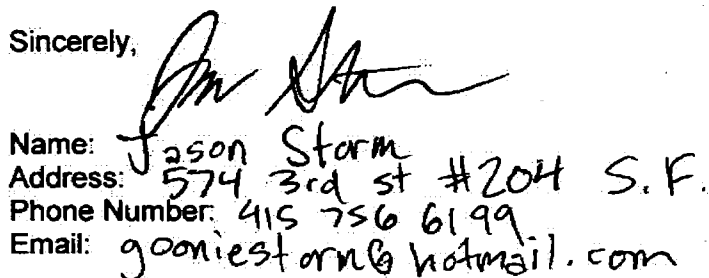 Sincerely,
Name: Jason Storm
Address: 574 3rd st #204 S.F.
Phone Number: 415 756 6199
Email: gooniestorm@hotmail.com